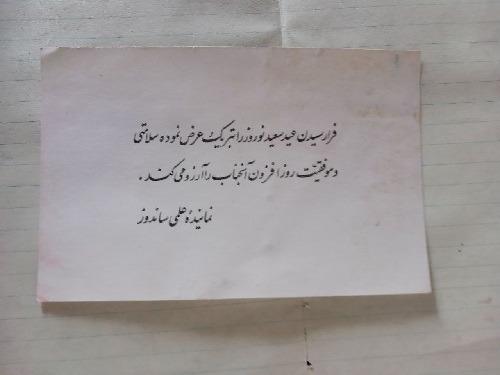 فرارسیدن عید سعید نوروز را تبریک عرض نموده سلامتی
و موفقیت روز افزون آنجناب را آرزو می کند .
نماینده علمی ساندوز